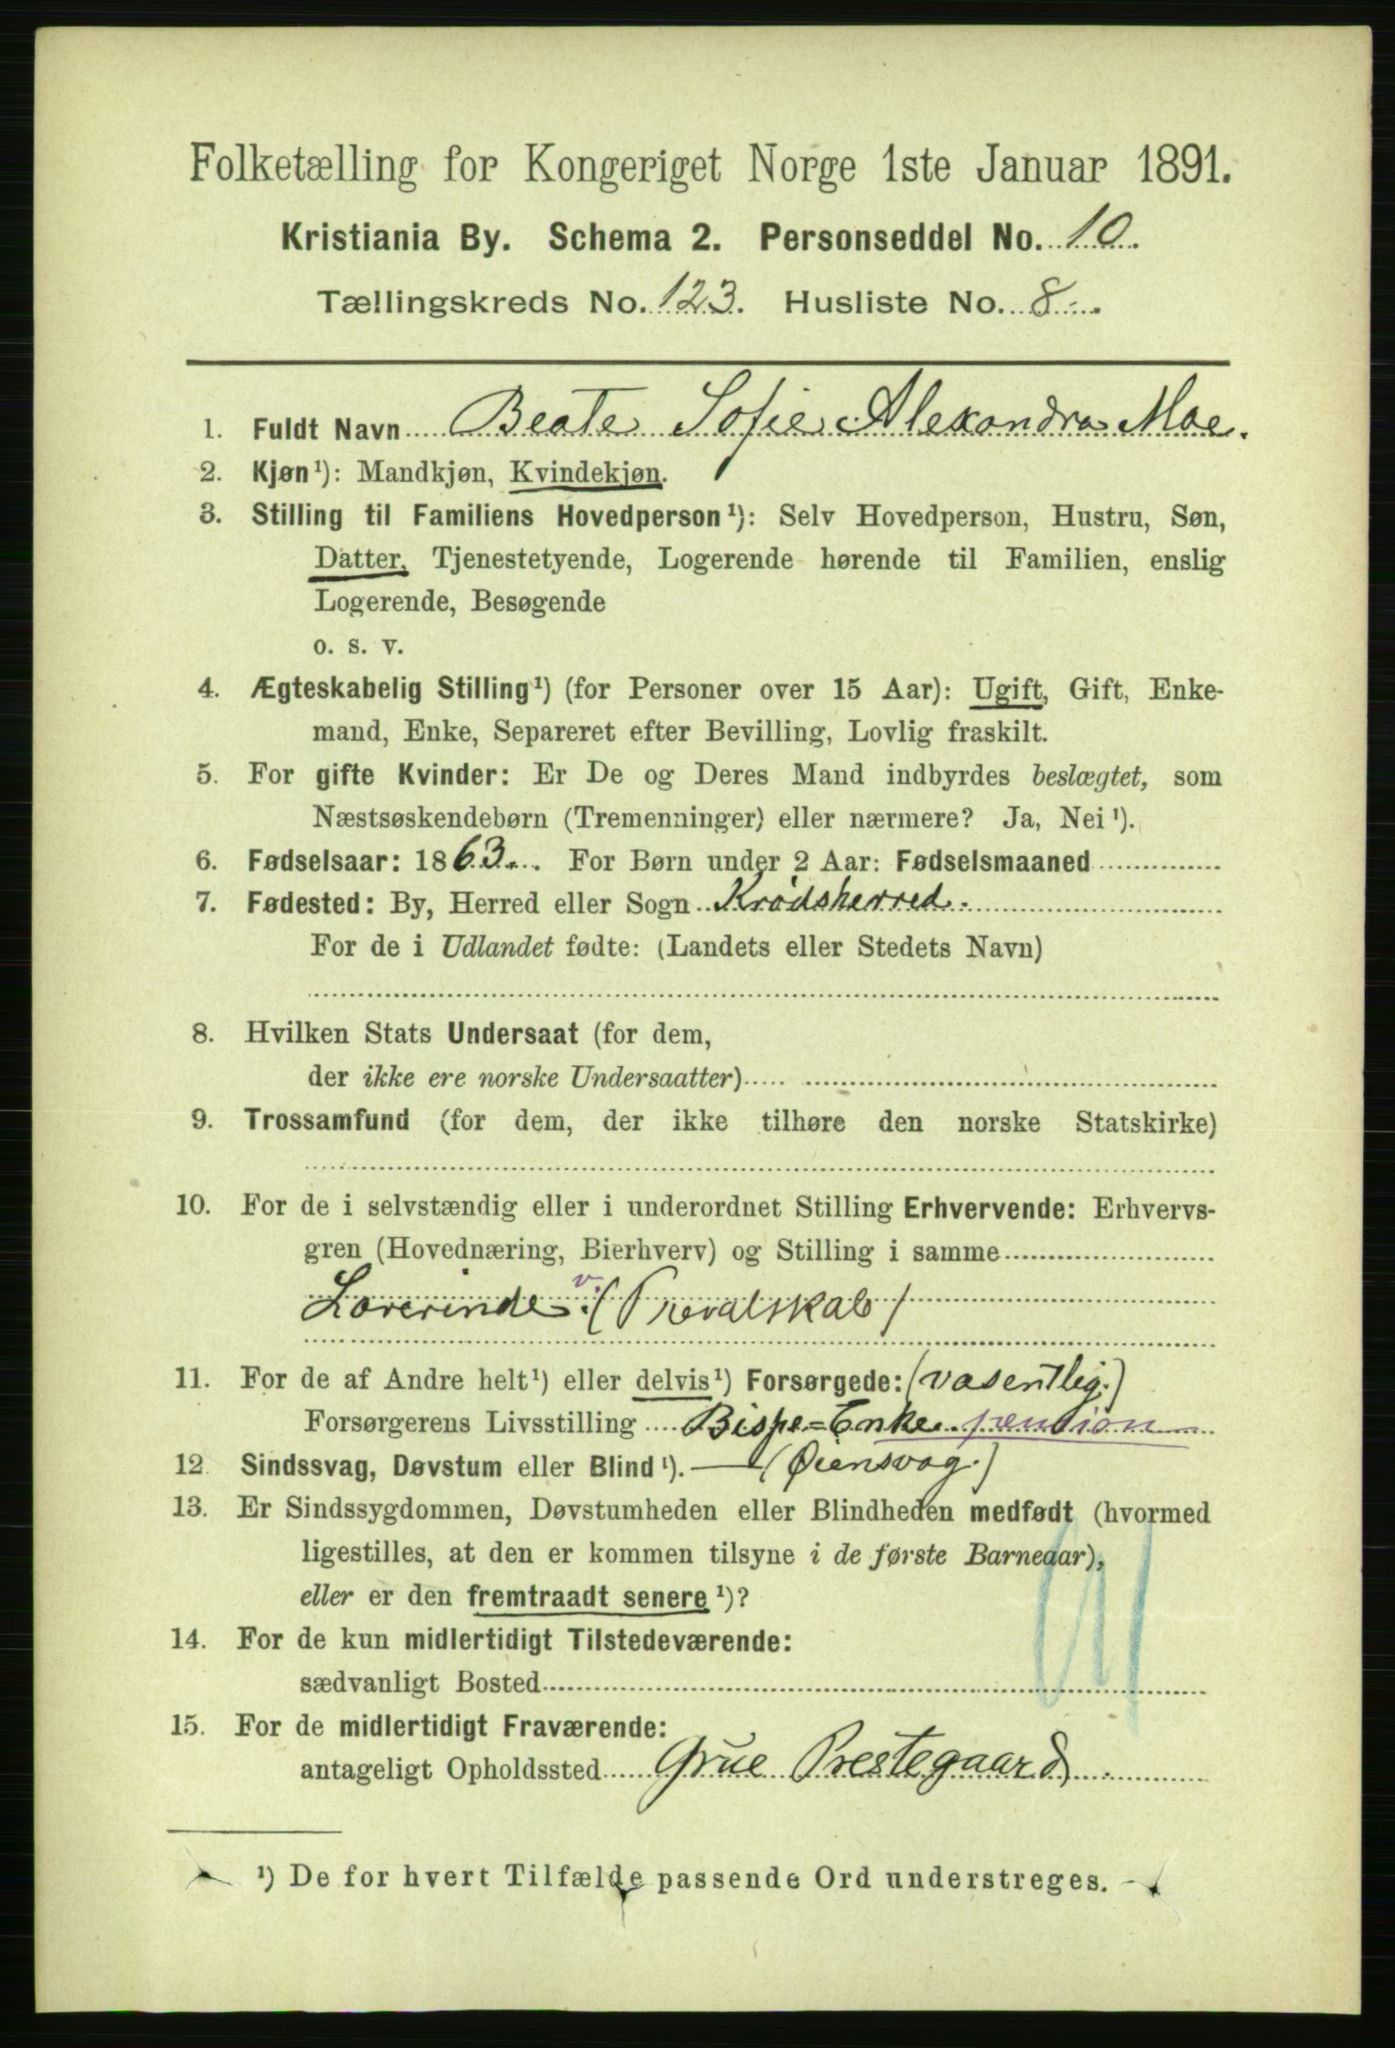 Folketælling for Kongeriget Norge 1ste Januar 1891.
Kristiania By. Schema 2. Personseddel No. 10.
Tællingskreds No. 123. Husliste No. 8
1. Fuldt Navn Beate Sofie Alexandra Moe.
2. Kjøn¹): Mandkjøn, Kvindekjøn.
3. Stilling til Familiens Hovedperson¹): Selv Hovedperson, Hustru, Søn,
Datter, Tjenestetyende, Logerende hørende til Familien, enslig
Logerende, Besøgende
o. s. v.
4. Ægteskabelig Stilling¹) (for Personer over 15 Aar): Ugift, Gift, Enke-
mand, Enke, Separeret efter Bevilling, Lovlig fraskilt.
5. For gifte Kvinder: Er De og Deres Mand indbyrdes beslægtet, som
Næstsøskendebørn (Tremenninger) eller nærmere? Ja, Nei¹).
6. Fødselsaar: 1863. For Børn under 2 Aar: Fødselsmaaned
7. Fødested: By, Herred eller Sogn Krødsherred.
For de i Udlandet fødte: (Landets eller Stedets Navn)
8. Hvilken Stats Undersaat (for dem,
der ikke ere norske Undersaatter)
9. Trossamfund (for dem, der ikke tilhøre den norske Statskirke)
10. For de i selvstændig eller i underordnet Stilling Erhvervende: Erhvervs-
gren (Hovednæring, Bierhverv) og Stilling i samme
Lærerinde v. (Prevatskab)
11. For de af Andre helt¹) eller delvis¹) Forsørgede: (væsentlig.)
Forsørgerens Livsstilling Bispe=Enke. pension
12 Sindssvag, Døvstum eller Blind¹). — (Øiensvag.)
13. Er Sindssygdommen, Døvstumheden eller Blindheden medfødt (hvormed
ligestilles, at den er kommen tilsyne i de første Barneaar),
eller er den fremtraadt senere¹)?
14. For de kun midlertidigt Tilstedeværende:
sædvanligt Bosted
15. For de midlertidigt Fraværende:
antageligt Opholdssted Grue Prestegaard.
¹) De for hvert Tilfælde passende Ord understreges.